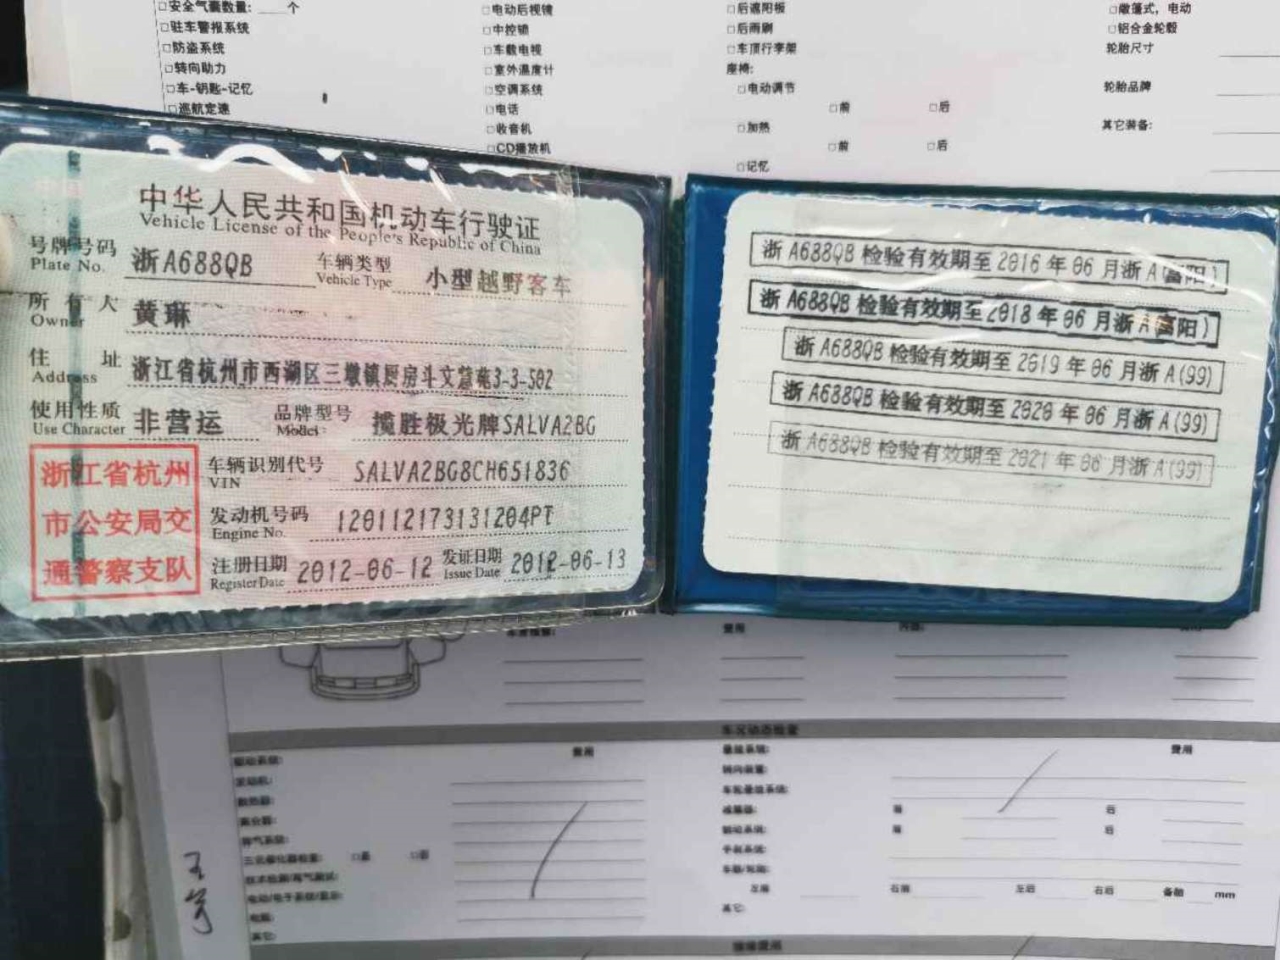 □安全气囊数量:____个
□电动后视镜
□后遮阳板
□敞篷式，电动
□驻车警报系统
□中控锁
□后雨刷
□铝合金轮毂
□防盗系统
□车载电视
□车顶行李架
轮胎尺寸
□转向助力
□室外温度计
座椅:
□车-钥匙-记忆
□空调系统
□电动调节
轮胎品牌
□巡航定速
□电话
□前
□后
□收音机
□加热
其它装备:
□CD播放机
□前
□后
□记忆
中华人民共和国机动车行驶证
Vehicle License of the People's Republic of China
号牌号码 浙A688QB 车辆类型 小型越野客车
Plate No. Vehicle Type
所有人 黄琳
Owner
住址 浙江省杭州市西湖区三墩镇厨房斗文慧苑3-3-502
Address
使用性质 非营运 品牌型号 揽胜极光牌SALVA2BG
Use Character Model
浙江省杭州
市公安局交
通警察支队
车辆识别代号 SALVA2BG8CH651836
VIN
发动机号码 120112173131204PT
Engine No.
注册日期 2012-06-12 发证日期 2012-06-13
Register Date Issue Date
浙A688QB检验有效期至2016年06月浙A(富阳)
浙A688QB检验有效期至2018年06月浙A(富阳)
浙A688QB检验有效期至2019年06月浙A(99)
浙A688QB检验有效期至2020年06月浙A(99)
浙A688QB检验有效期至2021年06月浙A(99)
费用
车况动态检查
费用
费用
驱动系统:
发动机:
散热器:
排气系统:
转向装置:
减震器:
前
后
制动系统:
前
后
其它:
左前
右前
左后
右后
备胎
mm
其它: